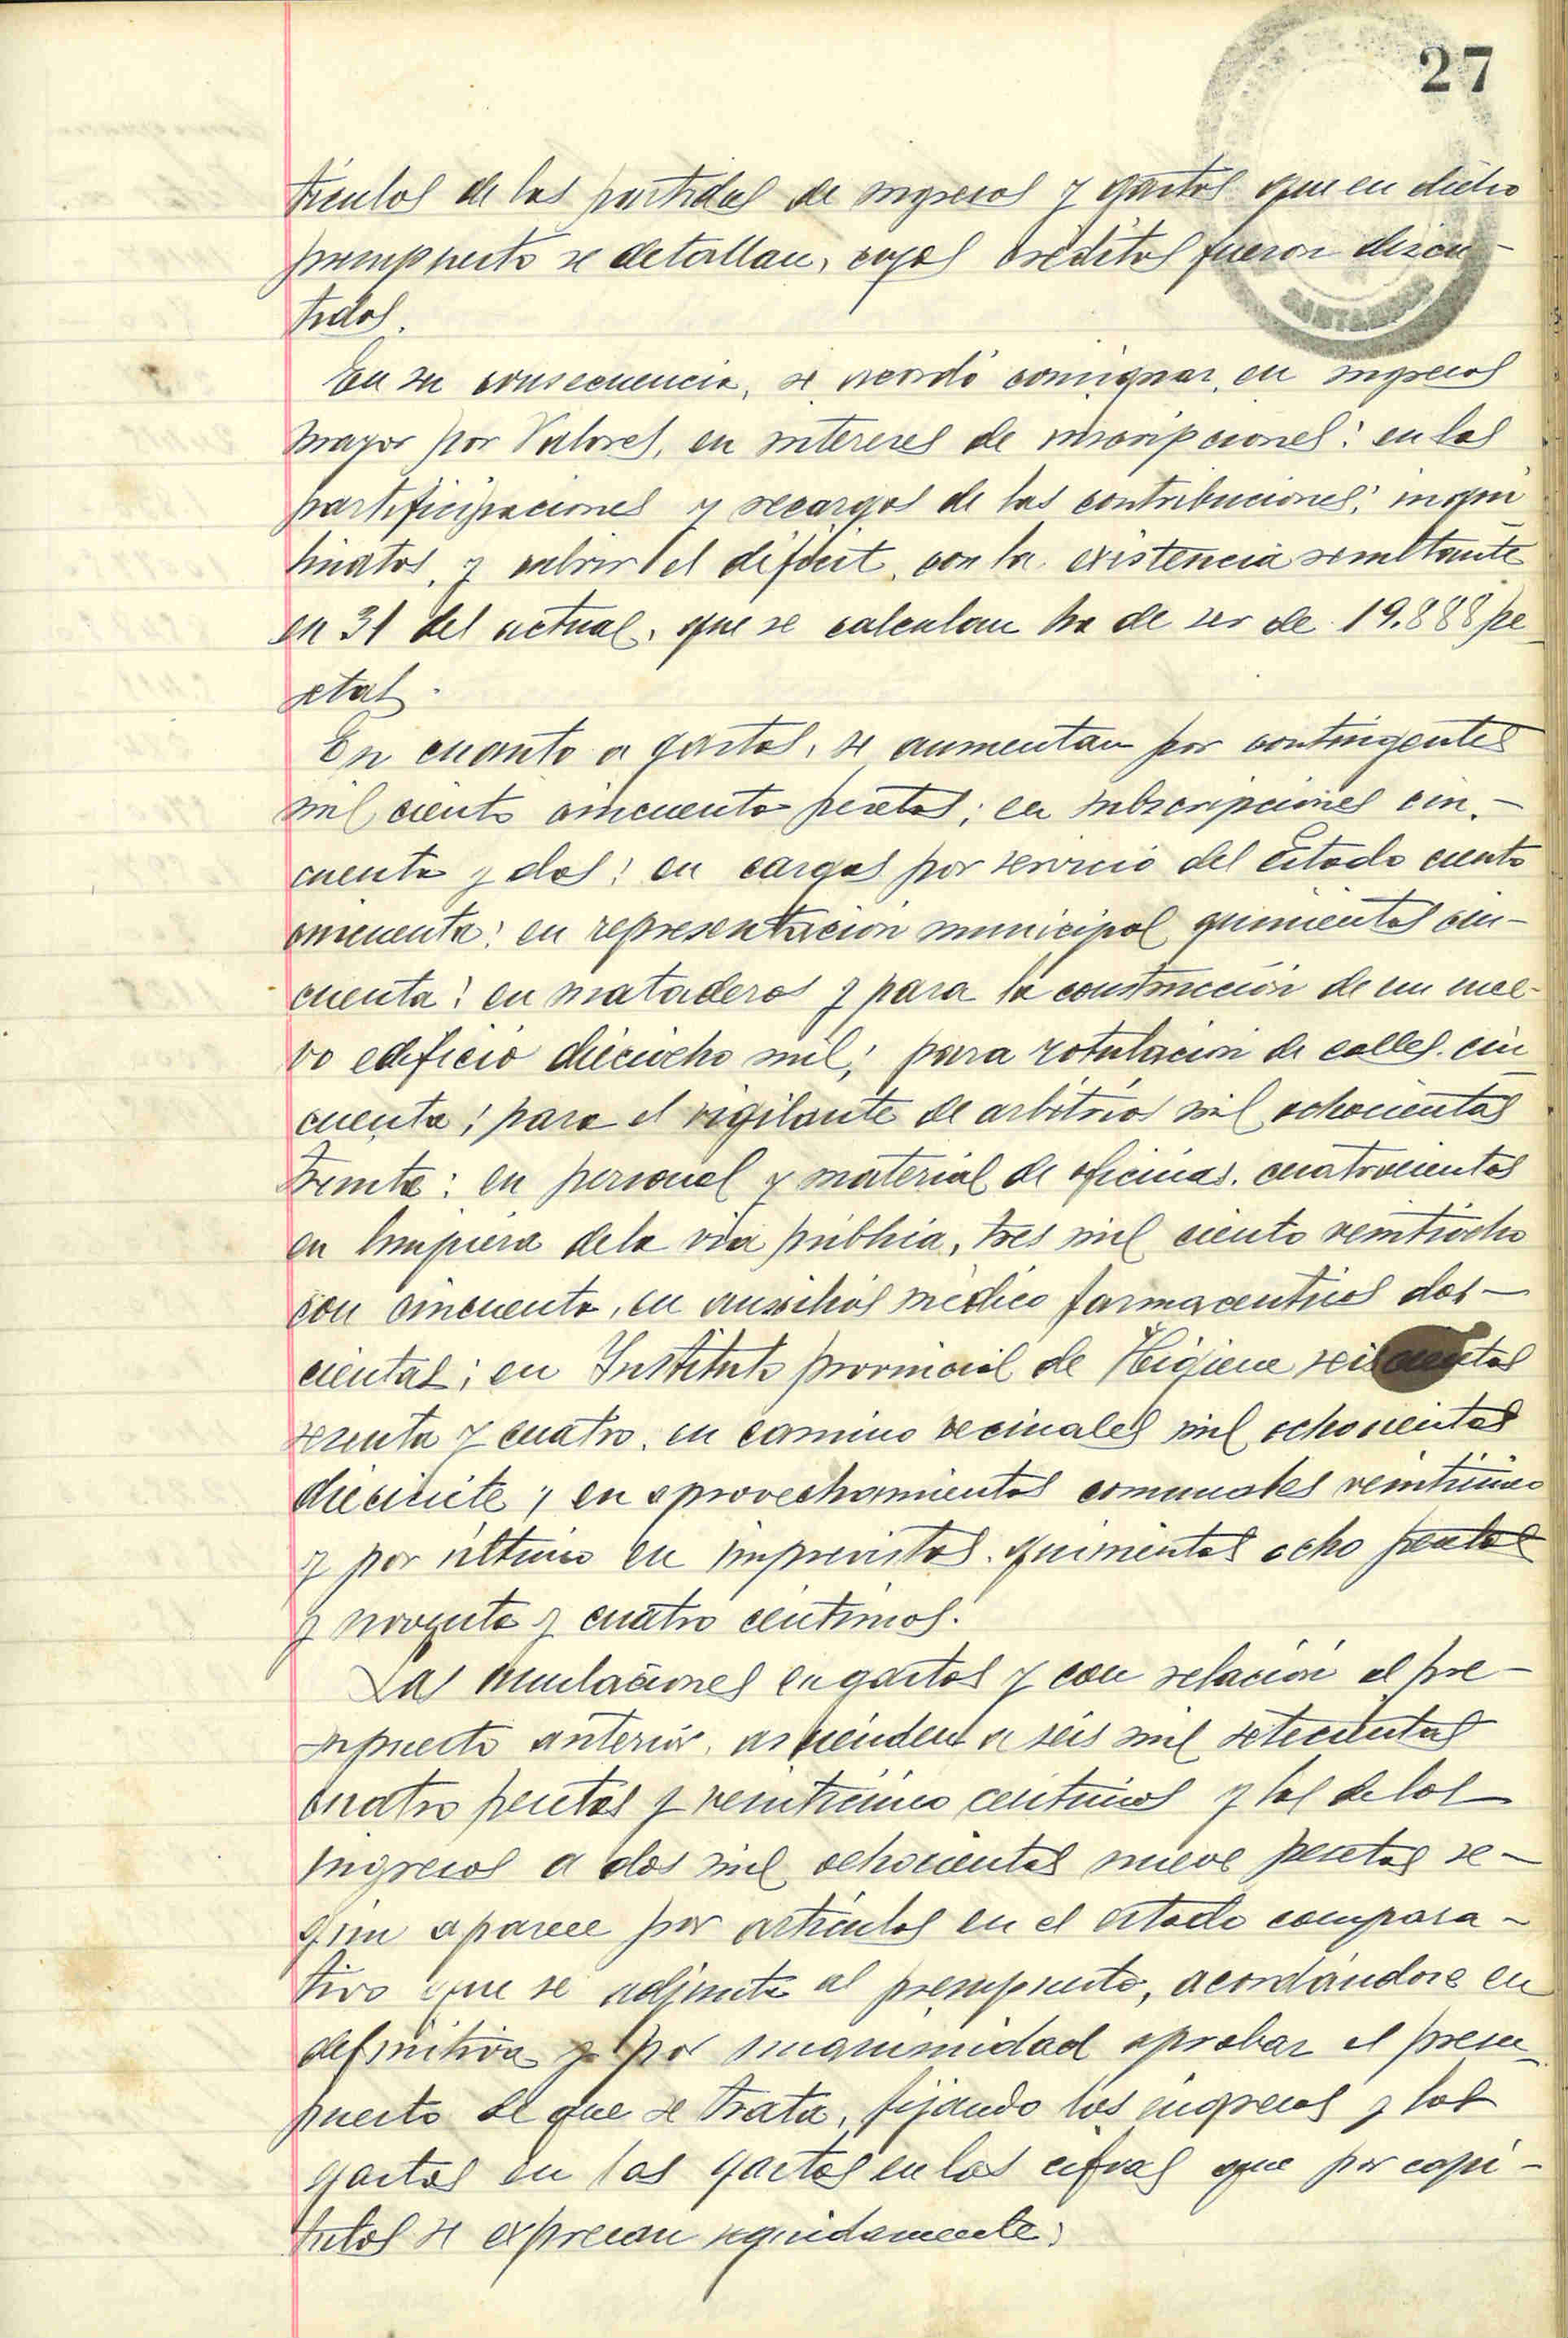 27
tículos de las partidas de ingresos y gastos que en dicho
presupuesto se detallan, cuyos créditos fueron discu-
tidos.
En su consecuencia, se acordó consignar, en ingresos
mayor por Valores, en intereses de inscripciones; en las
partificipaciones y recargos de las contribuciones; inqui
linatos, y cubrir el déficit, con la existencia resultante
en 31 del actual, que se calculan ha de ser de 19.888 pe-
setas.
En cuanto a gastos, se aumentan por contingentes
mil ciento cincuenta pesetas; en subscripciones cin-
cuenta y dos; en cargas por servicio del Estado ciento
cincuenta; en representación municipal quinientas cin-
cuenta; en mataderos y para la construcción de un nue-
vo edificio dieciocho mil; para rotulación de calles cin
cuenta; para el vigilante de arbitrios mil ochocientas
treinta; en personal y material de oficinas, cuatrocientas
en limpieza de la vía pública, tres mil ciento veintiocho
con cincuenta, en auxilios médico farmaceuticos dos-
cientas; en Instituto provincial de Higiene seiscientas
sesenta y cuatro, en camino vecinales mil ochocientas
diecisiete; en aprovechamientos comunales veinticinco
y por último en imprevistos quinientas ocho pesetas
y noventa y cuatro céntimos.
Las anulaciones en gastos y con relación al pre-
supuesto anterior, ascienden a seis mil setecientas
cuatro pesetas y veinticinco centimos y las de los
ingresos a dos mil ochocientas nueve pesetas se-
gún aparece por artículos en el estado compara-
tivo que se adjunta al presupuesto, acordándose en
definitiva y por unanimidad aprobar el presu-
puesto de que se trata, fijando los ingresos y los
gastos en las gastos en las cifras que por capí-
tulos se expresan seguidamente: